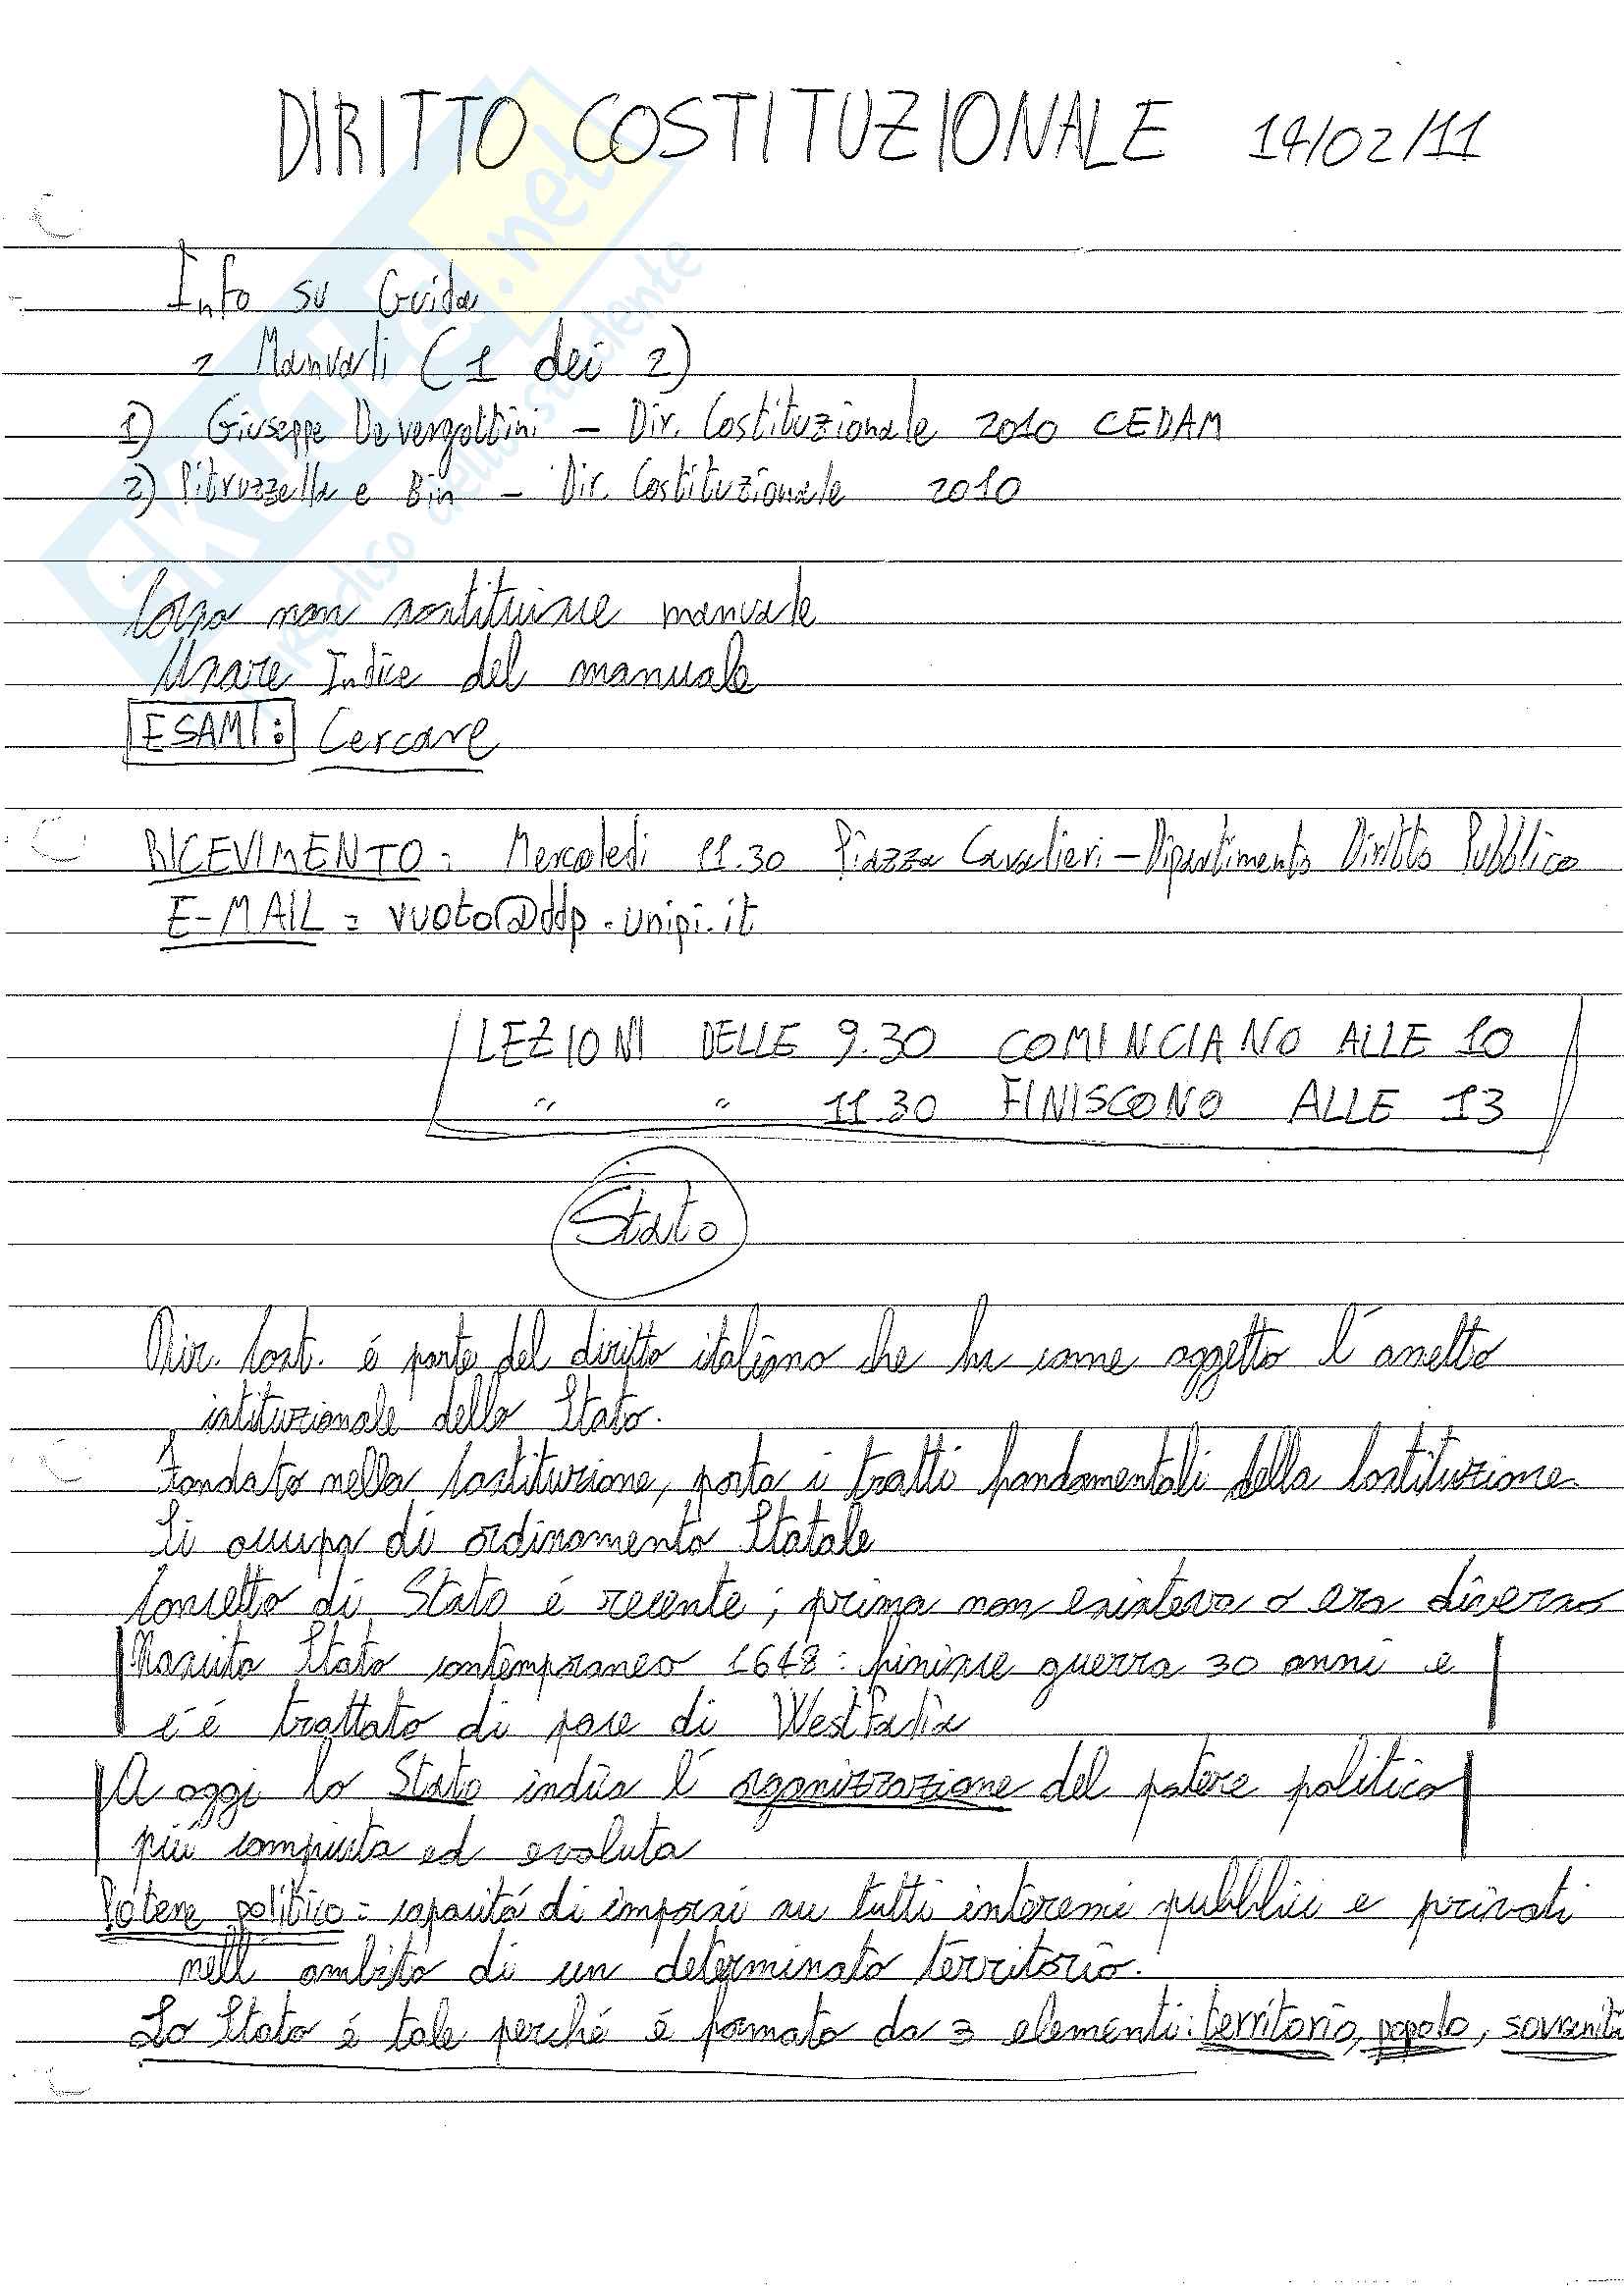 DIRITTO COSTITUZIONALE 14/02/11
Info su Guida
2 Manuali (1 dei 2)
1) Giuseppe Devergottini - Dir. Costituzionale 2010 CEDAM
2) Pitruzzella e Bin - Dir. Costituzionale 2010
Corso non sostituisce manuale
Usare Indice del manuale
ESAMI: Cercare
RICEVIMENTO: Mercoledì 11.30 Piazza Cavalieri - Dipartimento Diritto Pubblico
E-MAIL = vuoto@ddp.unipi.it
LEZIONI DELLE 9.30 COMINCIANO ALLE 10
" " 11.30 FINISCONO ALLE 13
Stato
Dir. Cost. é parte del diritto italiano che ha come oggetto l'assetto
istituzionale dello Stato.
Fondato nella Costituzione, porta i tratti fondamentali della Costituzione.
Si occupa di ordinamento Statale
Concetto di Stato é recente; prima non esisteva o era diverso
Nascita Stato contemporaneo 1648: finisce guerra 30 anni e
c'é trattato di pace di Westfalia
A oggi lo Stato indica l'organizzazione del potere politico
più compiuta ed evoluta
Potere politico = capacitá di imporsi su tutti interessi pubblici e privati
nell ambito di un determinato territorio.
Lo Stato é tale perché é formato da 3 elementi: territorio, popolo, sovranità
SKUOLA.net
Paradiso dello studente